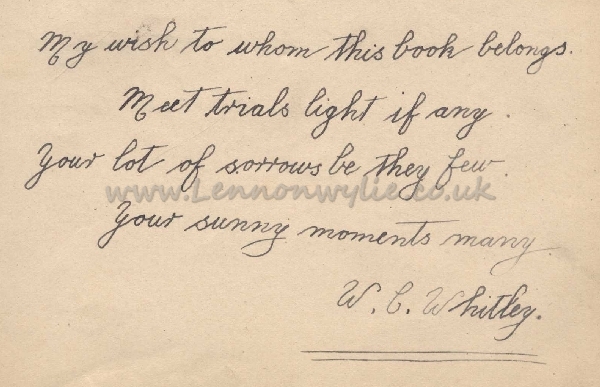 My wish to whom this book belongs.
Meet trials light if any.
Your lot of sorrows be they few.
www.Lennonwylie.co.uk
Your sunny moments many
W. C. Whitley.